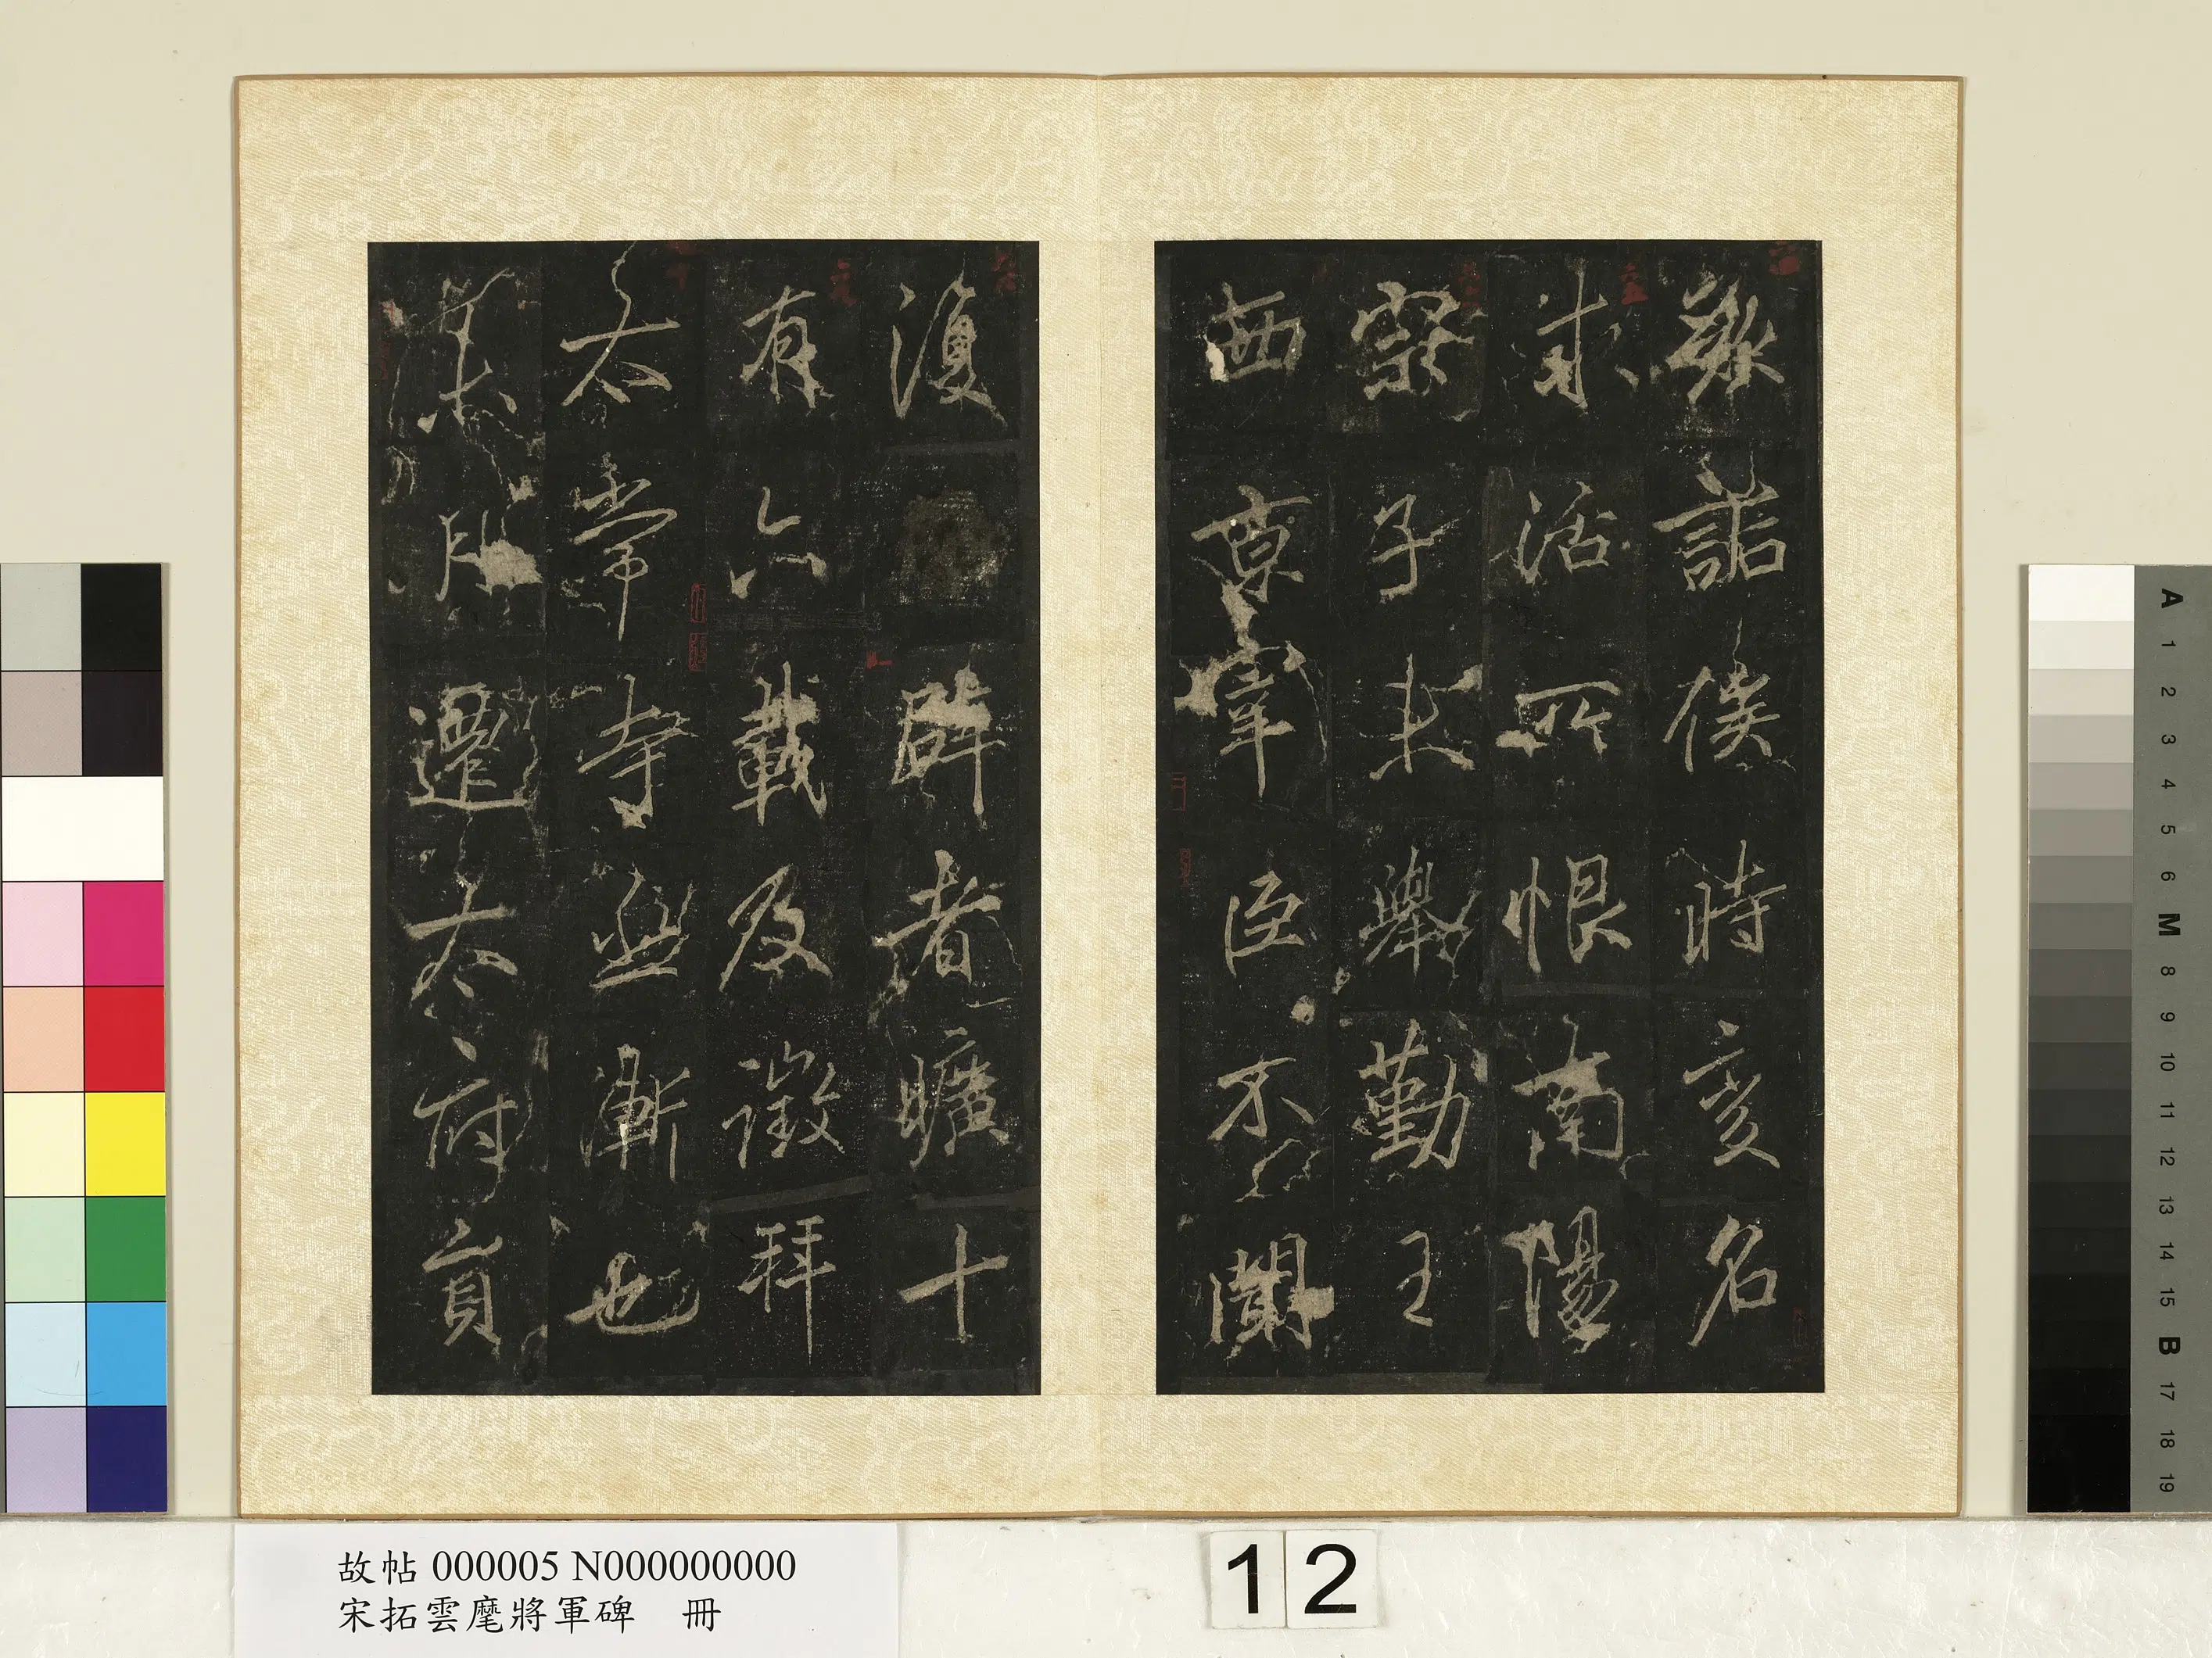 時變名
求活所恨南陽
子未舉勤王
西京宰臣不聞
復辟者曠十
有六載及徵拜
太常寺丞漸也
月遷太府員
故帖 000005 N000000000
宋拓雲麾將軍碑 冊
12
A 1 2 3 4 5 6 M 8 9 10 11 12 13 14 15 B 17 18 19